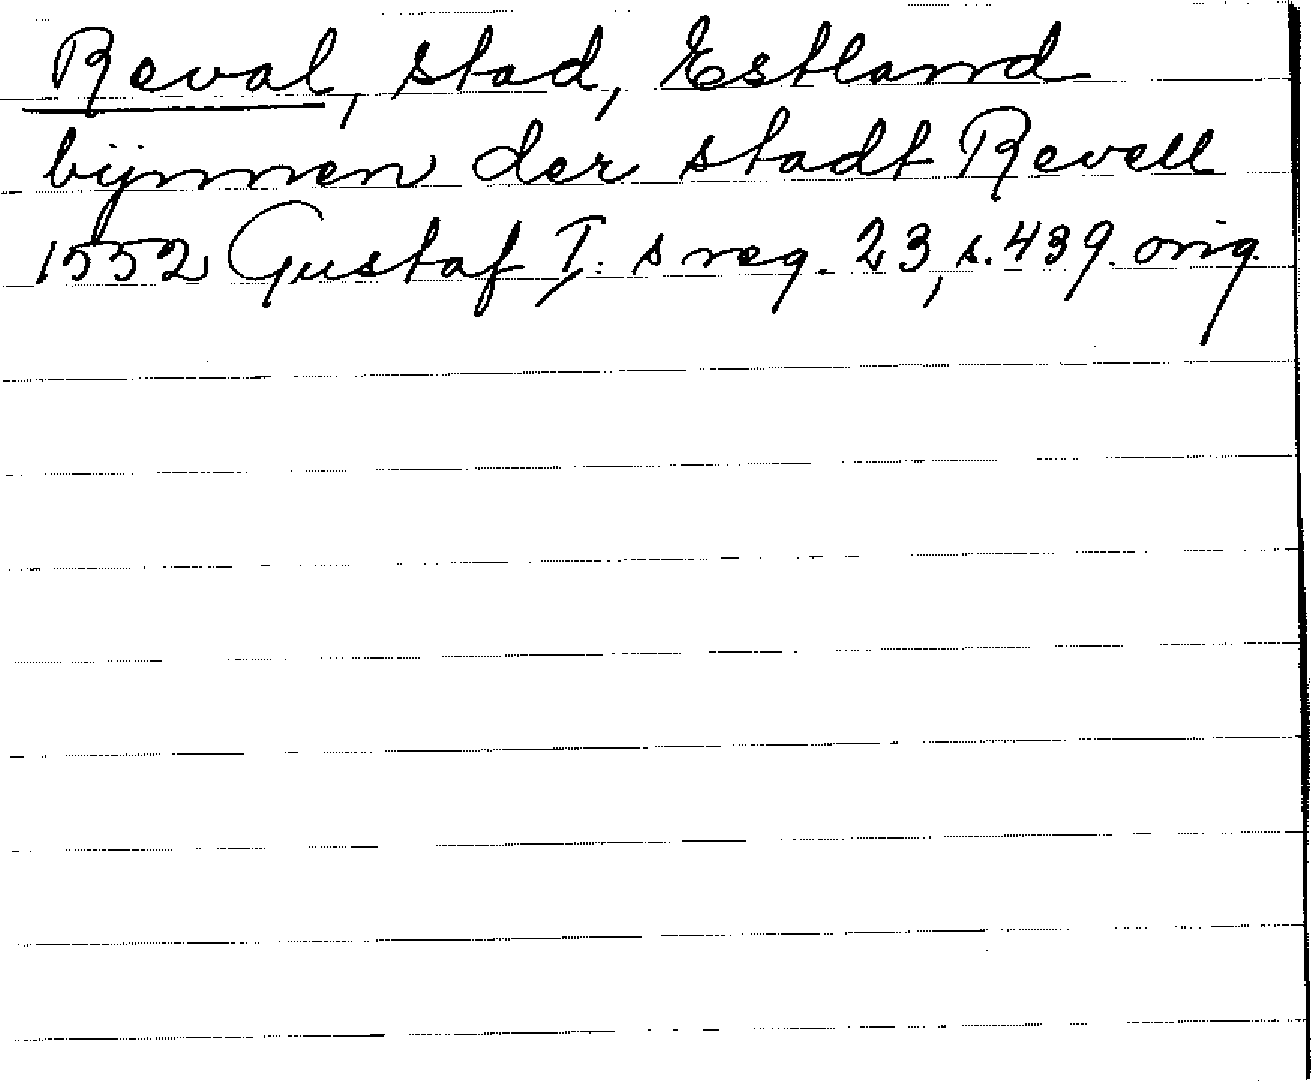 Reval, stad, Estland
bijnnen der stadt Revell
1552 Gustaf I:s reg. 23, s. 439. orig.